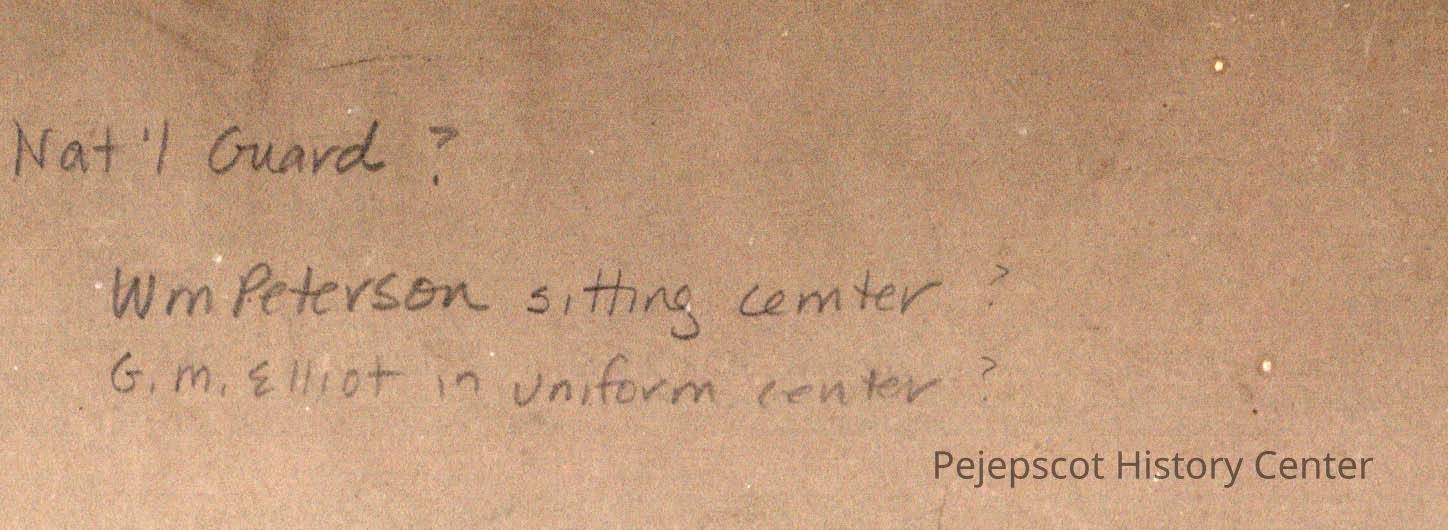 Nat'l Guard ?
Wm Peterson sitting cemter ?
G. M. Elliot in uniform center ?
Pejepscot History Center